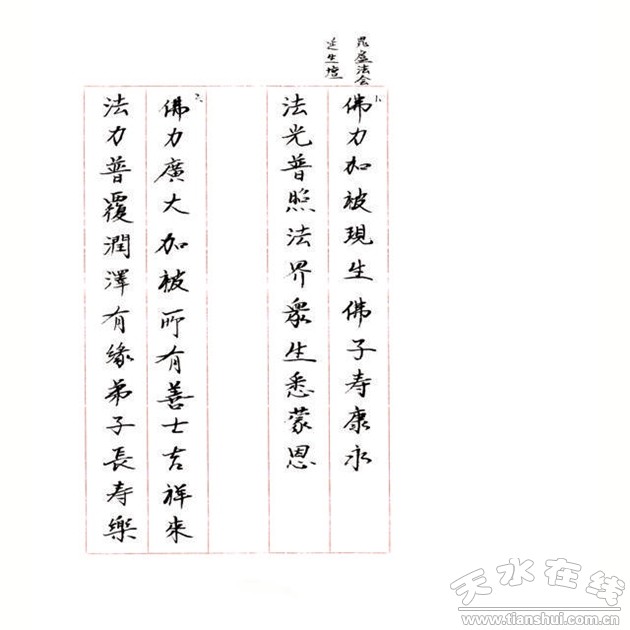 毘盧法会
延生壇
佛力加被現生佛子寿康永
法光普照法界衆生悉蒙恩
佛力廣大加被所有善士吉祥來
法力普覆潤澤有緣弟子長寿樂
天水在线
www.tianshui.com.cn